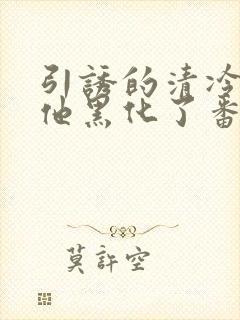 引誘的清冷
他黑化了番
莫許空